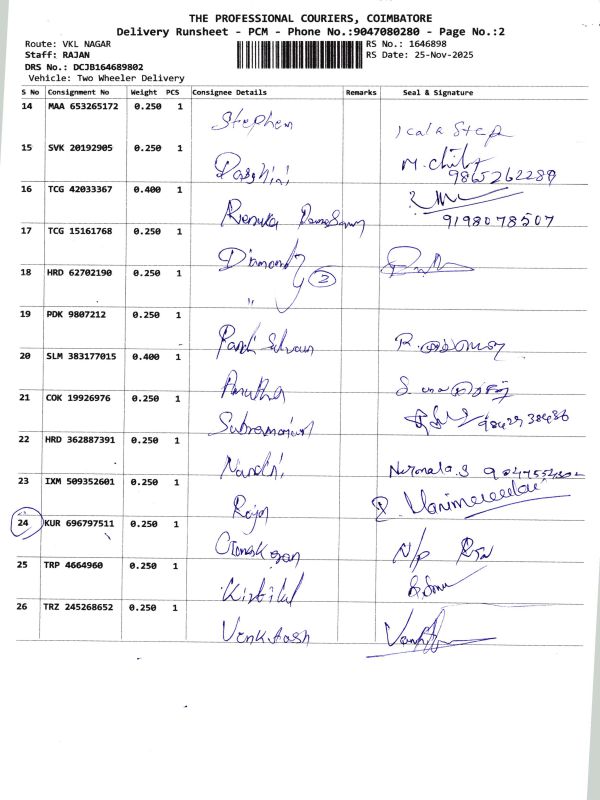 THE PROFESSIONAL COURIERS, COIMBATORE
Delivery Runsheet - PCM - Phone No.:9047080280 - Page No.:2
Route: VKL NAGAR
RS No.: 1646898
Staff: RAJAN
RS Date: 25-Nov-2025
DRS No.: DCJB164689802
Vehicle: Two Wheeler Delivery
S No Consignment No Weight PCS Consignee Details Remarks Seal & Signature
14 MAA 653265172 0.250 1
Stephen
15 SVK 20192905 0.250 1
9865262289
16 TCG 42033367 0.400 1
Renuka
9198078507
17 TCG 15161768 0.250 1
Diamond
18 HRD 62702190 0.250 1
2
"
19 PDK 9807212 0.250 1
Pandi Selvam
20 SLM 383177015 0.400 1
Anutha
21 COK 19926976 0.250 1
Subramaniam
22 HRD 362887391 0.250 1
Nandni
23 IXM 509352601 0.250 1
Rajan
24 KUR 696797511 0.250 1
N/p
25 TRP 4664960 0.250 1
26 TRZ 245268652 0.250 1
Venkatash